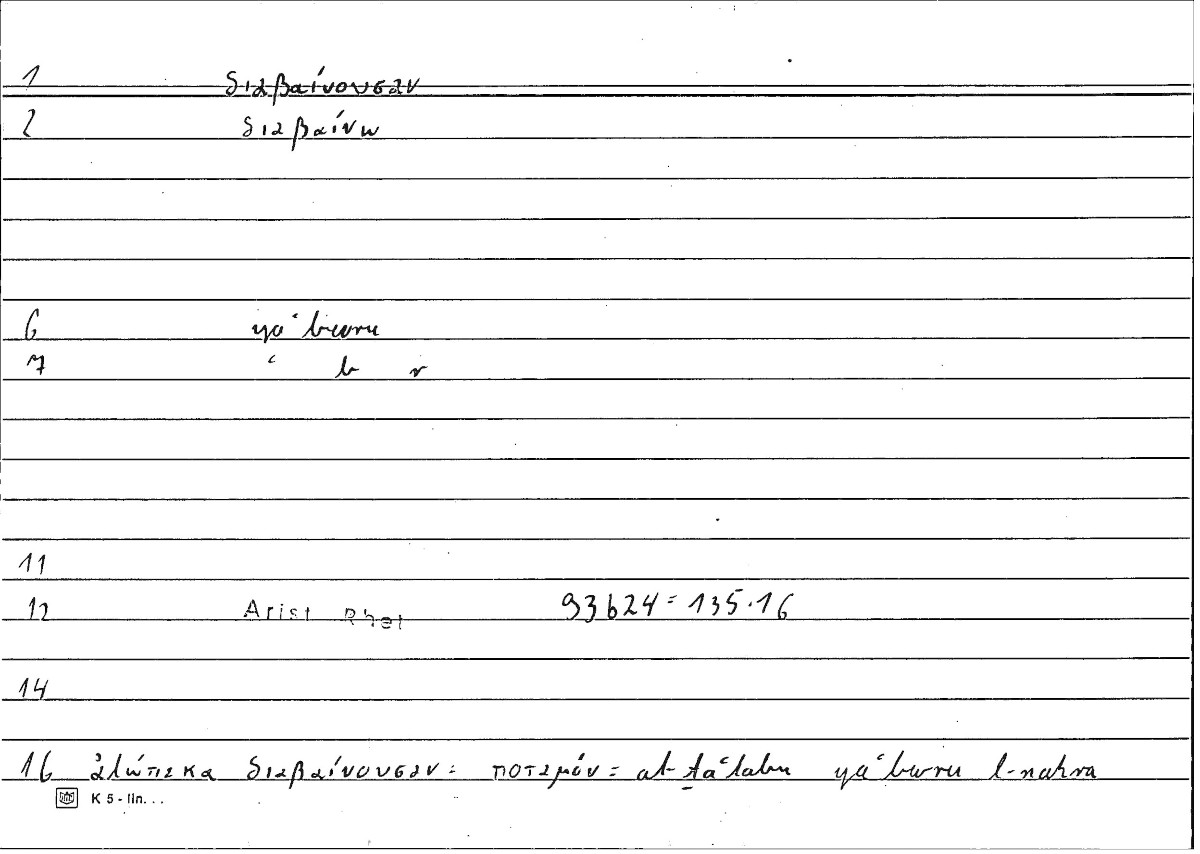 1 διαβαίνουσαν
2 διαβαίνω
6 yaʿburu
7 ʿ b r
11
12 Arist Rhet 93b24 = 135.16
14
16 ἀλώπεκα διαβαίνουσαν = ποταμόν = aṯ-ṯaʿlabu yaʿburu l-nahra
K 5 - lin. . .